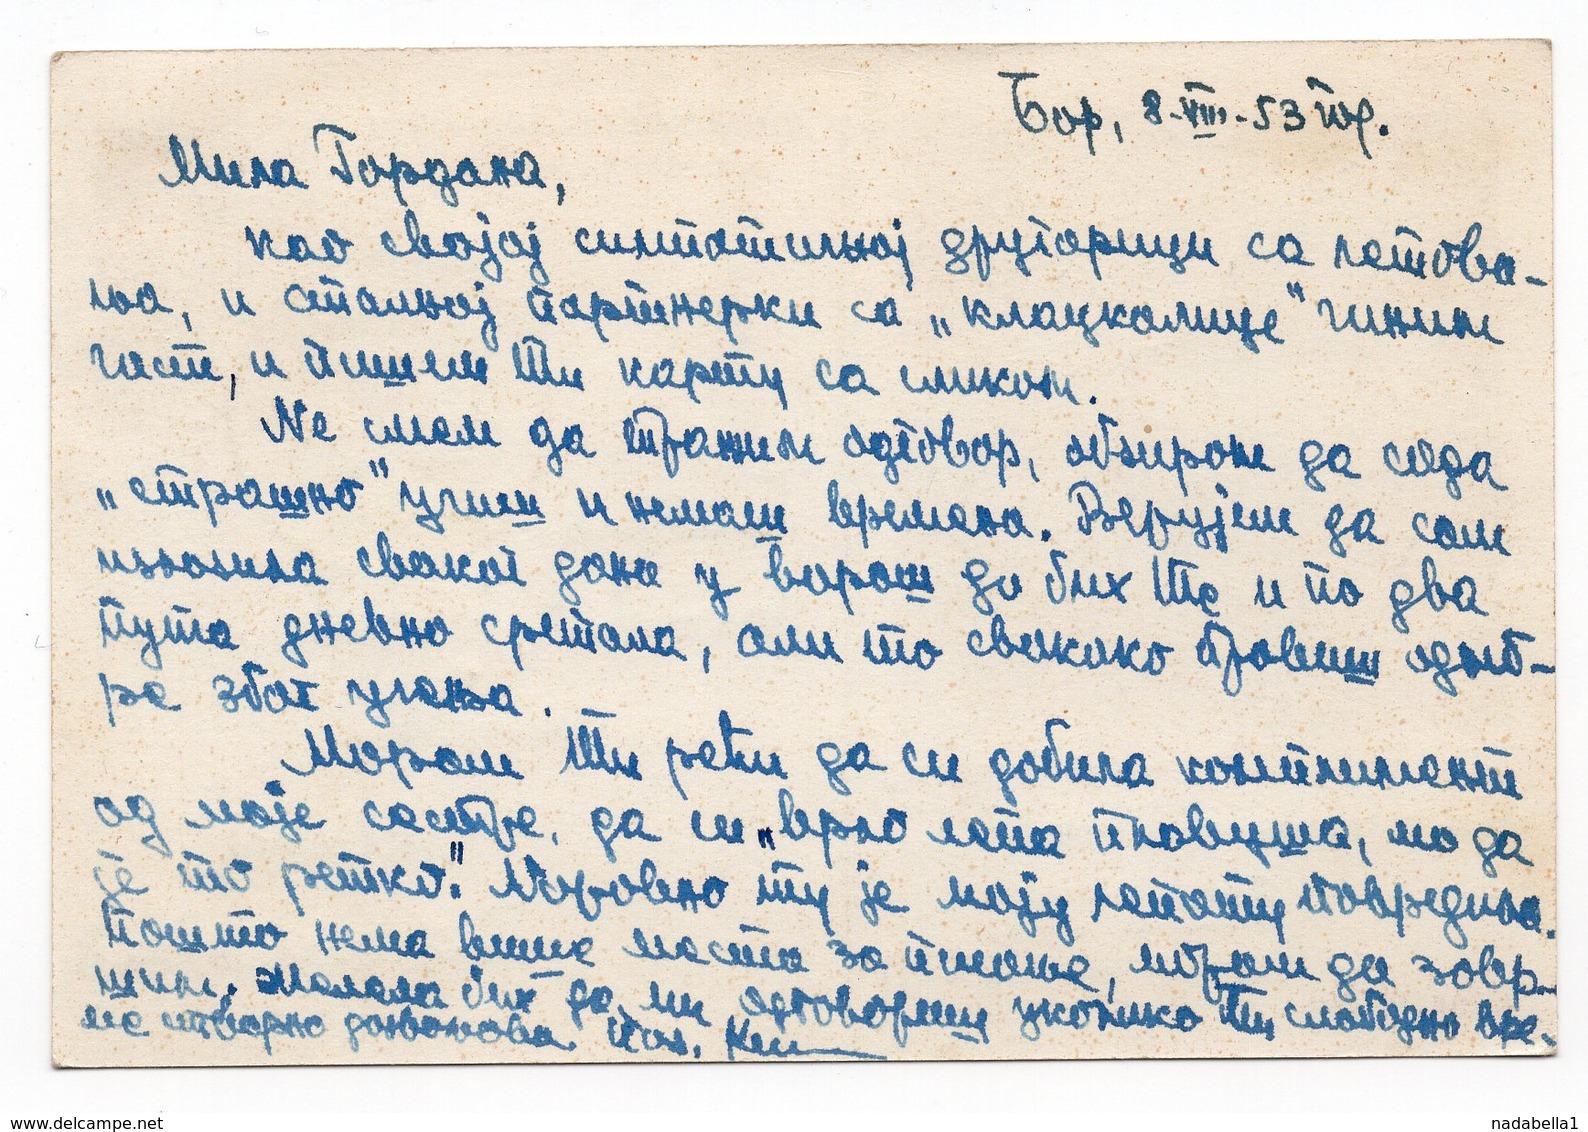 Бор, 8-VIII-53 год.
Мила Гордана,
као својој симпатичној другарици са летова-
ња, и сталној партнерки са „клацкалице" чиним
част, и пишем Ти карту са сликом.
Не смем да тражим одговор, обзиром да сада
„страшно" учиш и немаш времена. Верујем да сам
излазила сваког дана у варош да бих Те и по два
пута дневно сретала, али то свакако правиш одмо-
ре због учења.
Морам Ти рећи да си добила комплимент
од моје сестре, да си „врло лепа плавуша, ма да
је то ретко". Наравно ту је моју лепоту повредила.
Пошто нема више места за писање, морам да завр-
шим. Желела бих да ми одговориш уколико Ти слободно вре-
ме стварно дозвољава. Поз.
www.delcampe.net
nadabella1